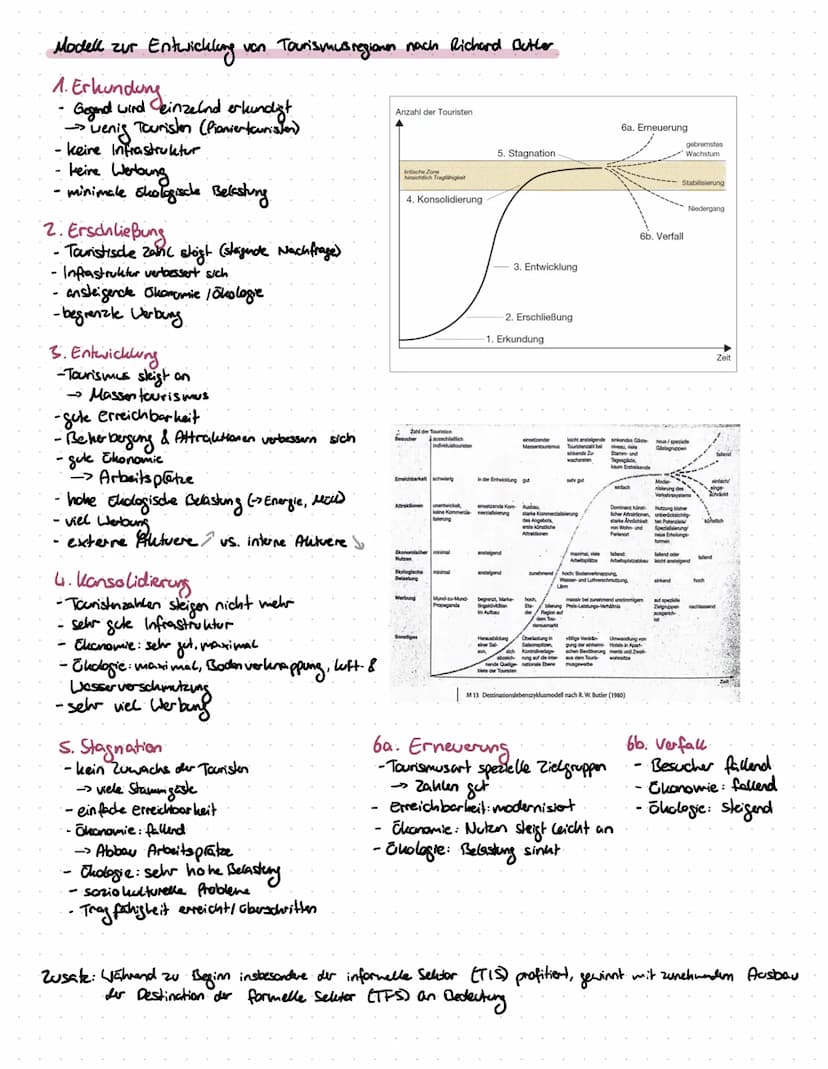 Modell zur Entwicklung von Tourismusregionen nach Richard Butler
1. Erkundung
- Gegend wird einzelnd erkundigt
→ wenig Touristen (Pioniertouristen)
- keine Infrastruktur
- keine Werbung
- minimale ökologische Belastung
2. Erschließung
- Touristische Zahl steigt (steigende Nachfrage)
- Infrastruktur verbessert sich
- ansteigende Ökonomie / Ökologie
- begrenzte Werbung
3. Entwicklung
- Tourismus steigt an
→ Massentourismus
- gute Erreichbarkeit
- Beherbergung & Attraktionen verbessern sich
- gute Ökonomie
→ Arbeitsplätze
- hohe ökologische Belastung (→ Energie, Müll)
- viel Werbung
- externe Akteure ↗ vs. interne Akteure ↘
4. Konsolidierung
- Touristenzahlen steigen nicht mehr
- sehr gute Infrastruktur
- Ökonomie: sehr gut, maximal
- Ökologie: maximal, Bodenverknappung, Luft- &
Wasserverschmutzung
- sehr viel Werbung
Anzahl der Touristen
6a. Erneuerung
gebremstes
Wachstum
5. Stagnation
kritische Zone
hinsichtlich Tragfähigkeit
Stabilisierung
4. Konsolidierung
Niedergang
6b. Verfall
3. Entwicklung
2. Erschließung
1. Erkundung
Zeit
Zahl der Touristen
Besucher ausschließlich Individualtouristen einsetzender Massentourismus leicht ansteigende Touristenzahl bei sinkende Zuwachsraten sinkendes Gästeniveau, viele Stamm- und Tagesgäste, kaum Erstreisende neue / spezielle Gästegruppen fallend
Erreichbarkeit schwierig in der Entwicklung gut sehr gut einfach Modernisierung des Verkehrssystems einfach/ eingeschränkt
Attraktionen unentwickelt, keine Kommerzialisierung einsetzende Kommerzialisierung Ausbau, starke Kommerzialisierung des Angebots, erste künstliche Attraktionen Dominanz künstlicher Attraktionen, starke Ähnlichkeit von Wohn- und Ferienort Nutzung bisher unberücksichtigten Potenzials/ Spezialisierung/ neue Erholungsformen künstlich
Ökonomischer Nutzen minimal ansteigend maximal, viele Arbeitsplätze fallend: Arbeitsplatzabbau fallend oder leicht ansteigend fallend
Ökologische Belastung minimal ansteigend zunehmend hoch: Bodenverknappung, Wasser- und Luftverschmutzung, Lärm sinkend hoch
Werbung Mund-zu-Mund-Propaganda begrenzt, Marketingaktivitäten im Aufbau hoch, Etablierung der Region auf dem Tourismusmarkt massiv bei zunehmend unstimmigem Preis-Leistungs-Verhältnis auf spezielle Zielgruppen ausgerichtet nachlassend
Sonstiges Herausbildung einer Saison, sich abzeichnende Quellgebiete der Touristen Überlastung in Saisonspitzen, Kontrollverlagerung auf die internationale Ebene völlige Verdrängung der einheimischen Bevölkerung aus dem Tourismusgewerbe Umwandlung von Hotels in Apartments und Zweitwohnsitze
Zeit
M 13 Destinationslebenszyklusmodell nach R. W. Butler (1980)
5. Stagnation
- kein Zuwachs der Touristen
→ viele Stammgäste
- einfache Erreichbarkeit
- Ökonomie: fallend
→ Abbau Arbeitsplätze
- Ökologie: sehr hohe Belastung
- soziokulturelle Probleme
- Tragfähigkeit erreicht / überschritten
6a. Erneuerung
- Tourismusart spezielle Zielgruppen
→ Zahlen gut
- Erreichbarkeit: modernisiert
- Ökonomie: Nutzen steigt leicht an
- Ökologie: Belastung sinkt
6b. Verfall
- Besucher fallend
- Ökonomie: fallend
- Ökologie: steigend
Zusatz: Während zu Beginn insbesondre der informelle Sektor (TIS) profitiert, gewinnt mit zunehmendem Ausbau
der Destination der formelle Sektor (TFS) an Bedeutung